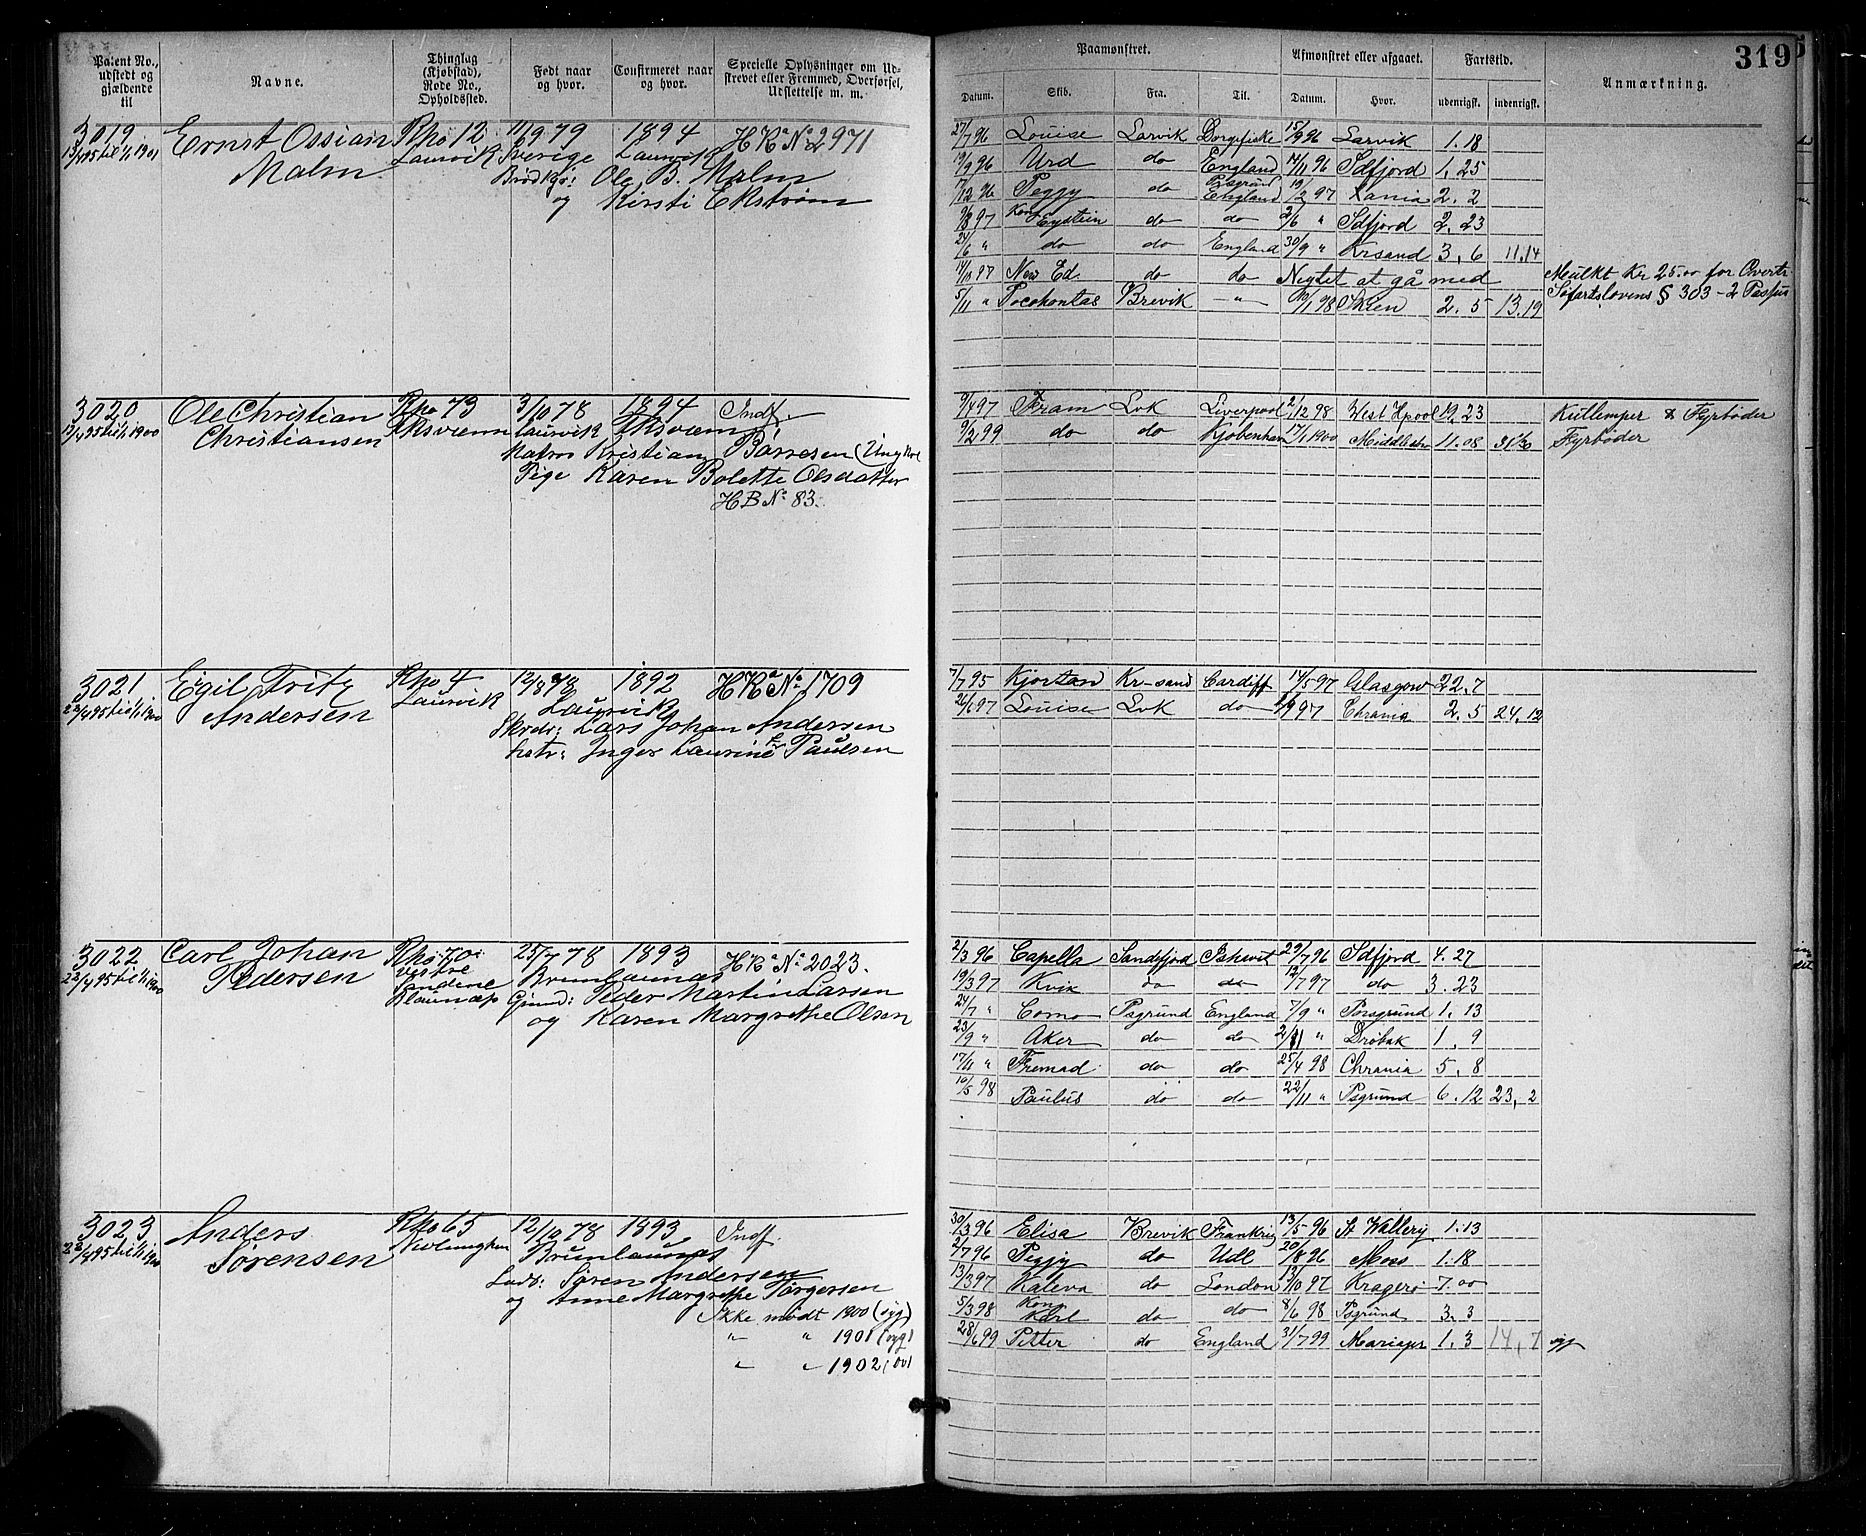 319
Patent No., udstedt og gjældende til
Navne.
Thinglag (Kjøbstad), Rode No., Opholdssted.
Født naar og hvor.
Confirmeret naar og hvor.
Specielle Oplysninger om Udstrevet eller Fremmed, Overførsel, Udslettelse m. m.
Paamønstret.
Afmønstret eller afgaaet.
Fartstid.
Anmærkning.
Datum. Skib. Fra. Til. Datum. Hvor. udenrigsk. indenrigsk.
3019 Ernst Ossian Rho 12 11/9 79 1894 HR No 2971
13/4 95 til 1/1 1901 Malm Laurvik Sverige Laurvik
Brødkjø: Ole B. Malm
og Kirsti Ekstrøm
27/7 96 Louise Larvik 15/9 96 Larvik 1.18
19/9 96 Urd do England 14/11 96 Sdfjord 1.25
17/12 96 Peggy do Psgrund England 19/2 97 Xania 2.2
9/3 97 Kong Eystein do do 2/6 " Sdfjord 2.23
24/6 " do do England 30/9 " Krsand 3.6 11.14
14/10 97 New Ed. do do Negtet at gå med
Mulkt Kr 25.00 for Overtr.
5/11 " Pocohontas Brevik — " — 10/1 98 Skien 2.5 13.19 Søfartslovens § 303-2 Passus
3020 Ole Christian Rho 73 3/10 78 1894 Indf.
13/4 95 til 1/1 1900 Christiansen Laurvik
Matros Kristian Børresen (Ungkar
Pige Karen Bolette Olsdatter
HB No 83.
9/4 97 Fram Lvk Liverpool 2/12 98 West Hpool 19.23 Kullemper & Fyrbøder
9/2 99 do do Kjøbenhavn 17/1 1900 11.08 Fyrbøder
3021 Egil Fritz Rho 4 12/8 78 1892 HR No 1709
22/4 95 til 1/1 1900 Andersen Laurvik Laurvik
Skrdr: Lars Johan Andersen
hstr: Inger Laurine Paulsen
7/7 95 Kjortan Kr-sand Cardiff 14/5 97 Glasgow 22.7
26/6 97 Louise Lvk do 97 Chrania 2.5 24.12
3022 Carl Johan Rho 70 25/7 78 1893 HR No 2023.
22/4 95 til 1/1 1900 Pedersen Vestre Brunlaunæs
Gjmd: Peder Martin Larsen
og Karen Margrethe Olsen
2/3 96 Capella Sandefjord 29/7 96 Sdfjord 4.27
19/3 97 Kvik do do 12/7 97 do 3.23
24/7 " Como Psgrund England 7/9 " Porsgrund 1.13
23/9 " Aker do do 2/11 " Drøbak 1.9
17/11 " Fremad do do 25/4 98 Chrania 5.8
10/5 98 Paulus do do 22/11 " Psgrund 6.12 23.2
3023 Anders Rho 65 12/10 78 1893 Indf.
22/4 95 til 1/1 1900 Sørensen Brunlaunæs
Søren Andersen
og Anne Margrethe Torgersen
Ikke mødt 1900 (syg)
" " 1901 (syg)
" " 1902
30/3 96 Elisa Brevik Frankrig 13/5 96 St Wallery 1.13
2/7 96 Peggy do Udl 20/8 96 Moss 1.18
13/3 97 Kaleva do London 13/10 97 Kragerø 7.00
5/3 98 Kong Karl do do 8/6 98 Psgrund 3.3
28/6 99 Petter do England 31/7 99 1.3 14.7 syg